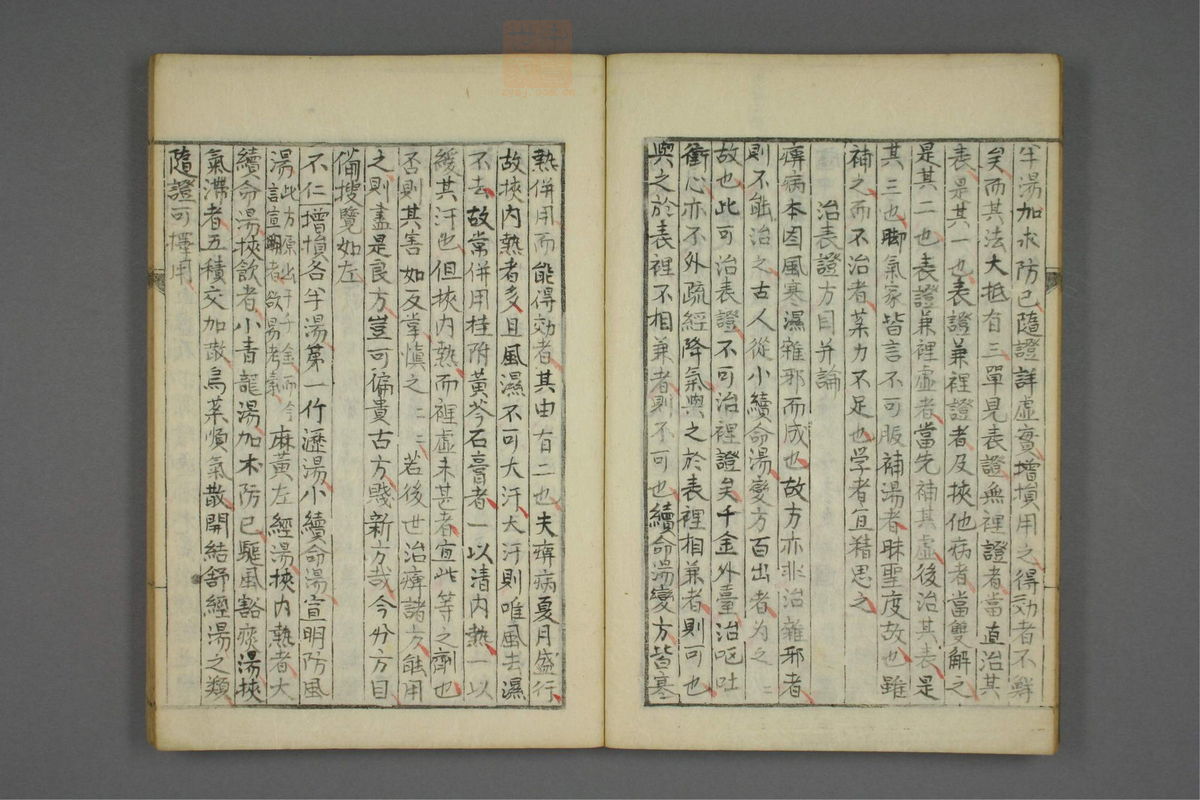 半湯加朮防已隨證詳虛實增損用之得効者不鮮
矣而其法大抵有三單見表證無裡證者當直治其
表是其一也表證兼裡證者及挾他病者當雙解之
是其二也表證兼裡虛者當先補其虛後治其表是
其三也脚氣家皆言不可服補湯者昧聖度故也雖
補之而不治者菜力不足也学者宜精思之
治表證方目并論
痺病本因風寒濕雜邪而成也故方亦非治雜邪者
則不能治之古人從小續命湯變方百出者为之
故也此可治表證不可治裡證矣千金外臺治嘔吐
衝心亦不外疏經降氣與之於表裡相兼者則可也
與之於表裡不相兼者則不可也續命湯變方皆寒
熱併用而能得効者其由有二也夫痺病夏月盛行
故挾內熱者多且風濕不可大汗大汗則唯風去濕
不去故常併用桂附黃芩石膏者一以清內熱一以
緩其汗也但挾內熱而裡虛未甚者宜此等之齊也
否則其害如反掌慎之二二若後世治痺諸方能用
之則盡是良方豈可偏貴古方賤新方哉今分方目
備搜覽如左
不仁一增損各半湯第一竹瀝湯小續命湯宣明防風
湯此方原出于千金而今言宣明者欲易考氣麻黃左經湯挾內熱者大
續命湯挾飲者小青龍湯加朮防已驅風豁痰湯挾
氣滯者五積交加散烏菜順氣散開結舒經湯之類
隨證可擇用